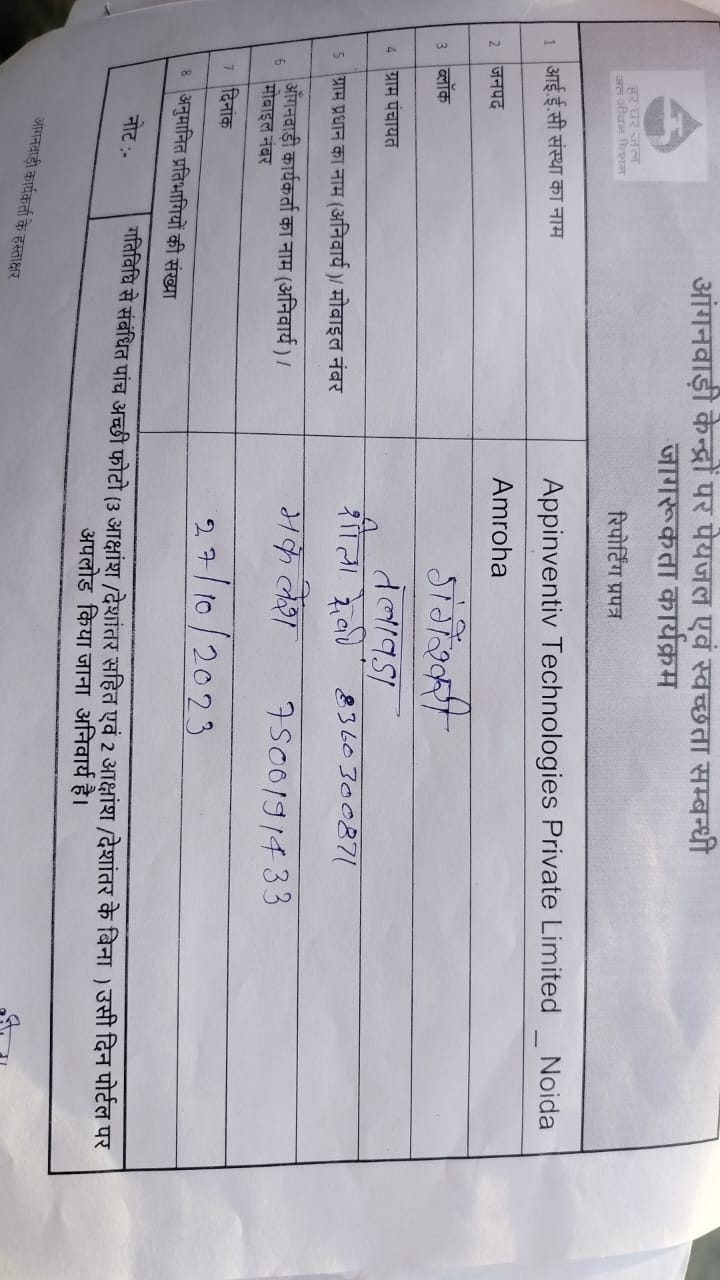 हर घर जल
जल जीवन मिशन
आंगनवाड़ी केन्द्रों पर पेयजल एवं स्वच्छता सम्बन्धी
जागरूकता कार्यक्रम
रिपोर्टिंग प्रपत्र
1 आई.ई.सी संस्था का नाम Appinventiv Technologies Private Limited _ Noida
2 जनपद Amroha
3 ब्लॉक गंगेश्वरी
4 ग्राम पंचायत
5 ग्राम प्रधान का नाम (अनिवार्य)/ मोबाइल नंबर शीला देवी 8360300871
6 आँगनवाड़ी कार्यकर्ता का नाम (अनिवार्य) /
मोबाइल नंबर 7500191433
7 दिनांक 27/10/2023
8 अनुमानित प्रतिभागियों की संख्या
नोट :- गतिविधि से संबंधित पांच अच्छी फोटो (3 आक्षांश /देशांतर सहित एवं 2 आक्षांश /देशांतर के बिना ) उसी दिन पोर्टल पर
अपलोड किया जाना अनिवार्य है।
आंगनवाड़ी कार्यकर्ता के हस्ताक्षर